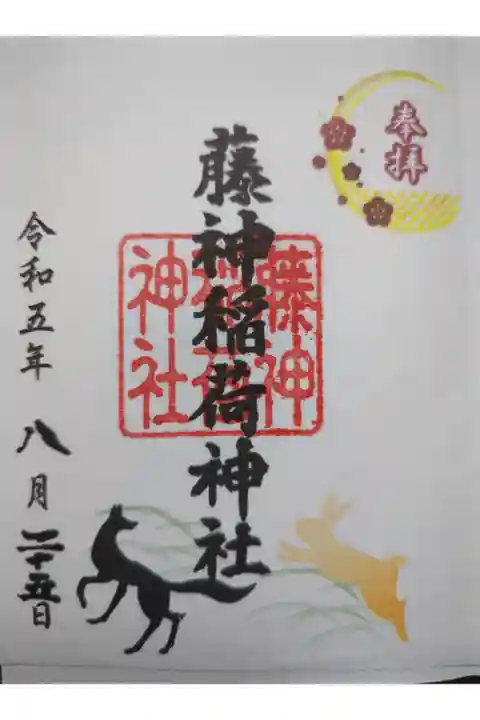 奉拝
藤神稲荷神社
藤神
稲荷
神社
令和五年 八月二十五日